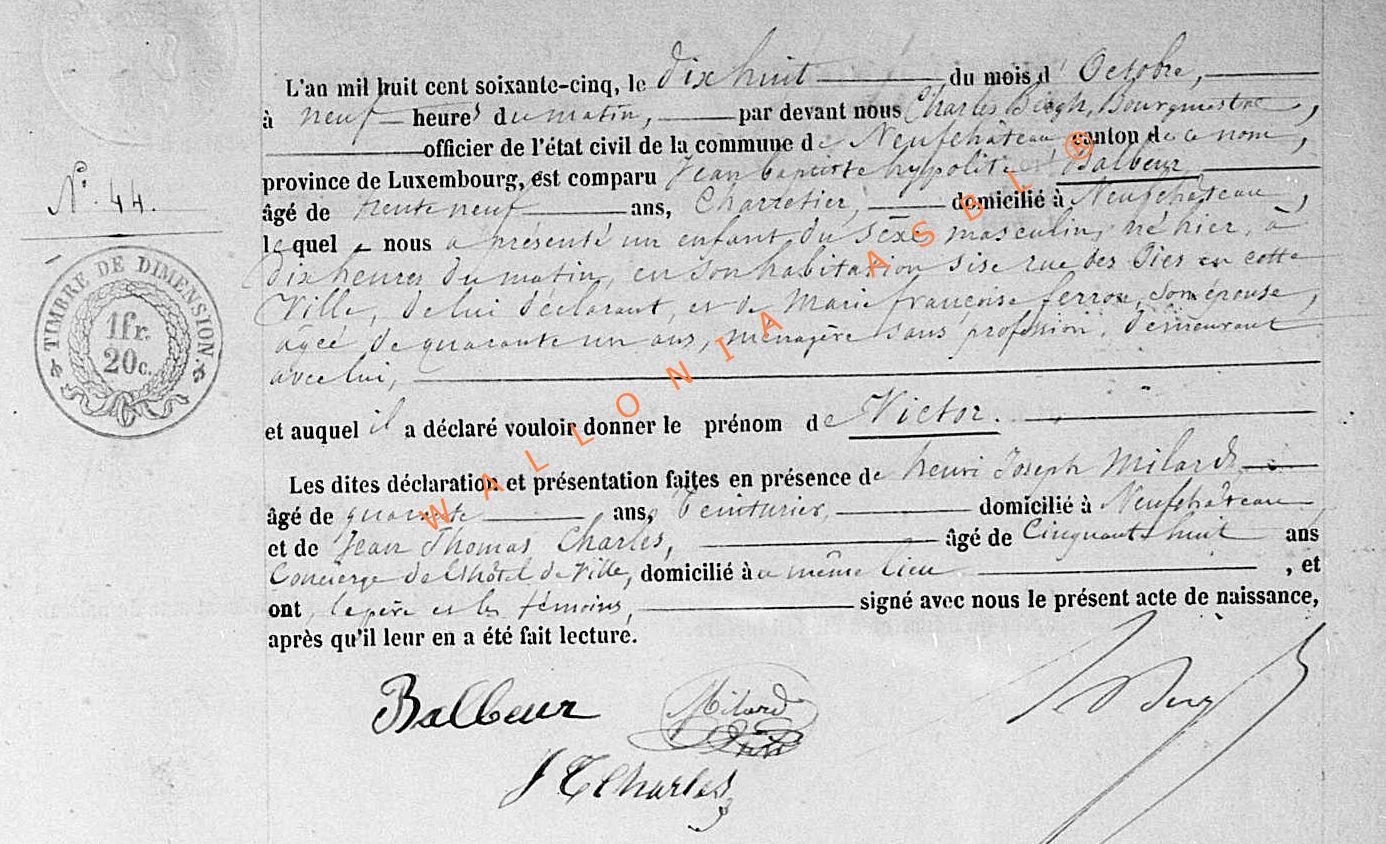 L'an mil huit cent soixante-cinq, le dix huit du mois d' Octobre,
à neuf heures du matin, par devant nous Charles Bourgmestre,
officier de l'état civil de la commune de Neufchâteau canton de ce nom,
province de Luxembourg, est comparu Jean baptiste hypolite Balbeur
âgé de trente neuf ans, Charretier, domicilié à Neufchâteau,
lequel nous a présenté un enfant du sexe masculin, né hier, à
dix heures du matin, en son habitation sise rue des en cette
Ville, de lui déclarant, et de Marie françoise ferron, son épouse,
agée de quarante un ans, ménagère sans profession, demeurant
avec lui,
et auquel il a déclaré vouloir donner le prénom de Victor.
Les dites déclaration et présentation faites en présence de henri Joseph Milard
âgé de quarante ans, Teinturier, domicilié à Neufchâteau
et de Jean Thomas Charles, âgé de Cinquante huit ans
Concierge de l'hôtel de Ville, domicilié à même lieu , et
ont, le père et les témoins, signé avec nous le présent acte de naissance,
après qu'il leur en a été fait lecture.
N° 44.
TIMBRE DE DIMENSION.
1fr.
20c.
Balbeur
Milard
J T Charles
WALLONIA ASBL ®